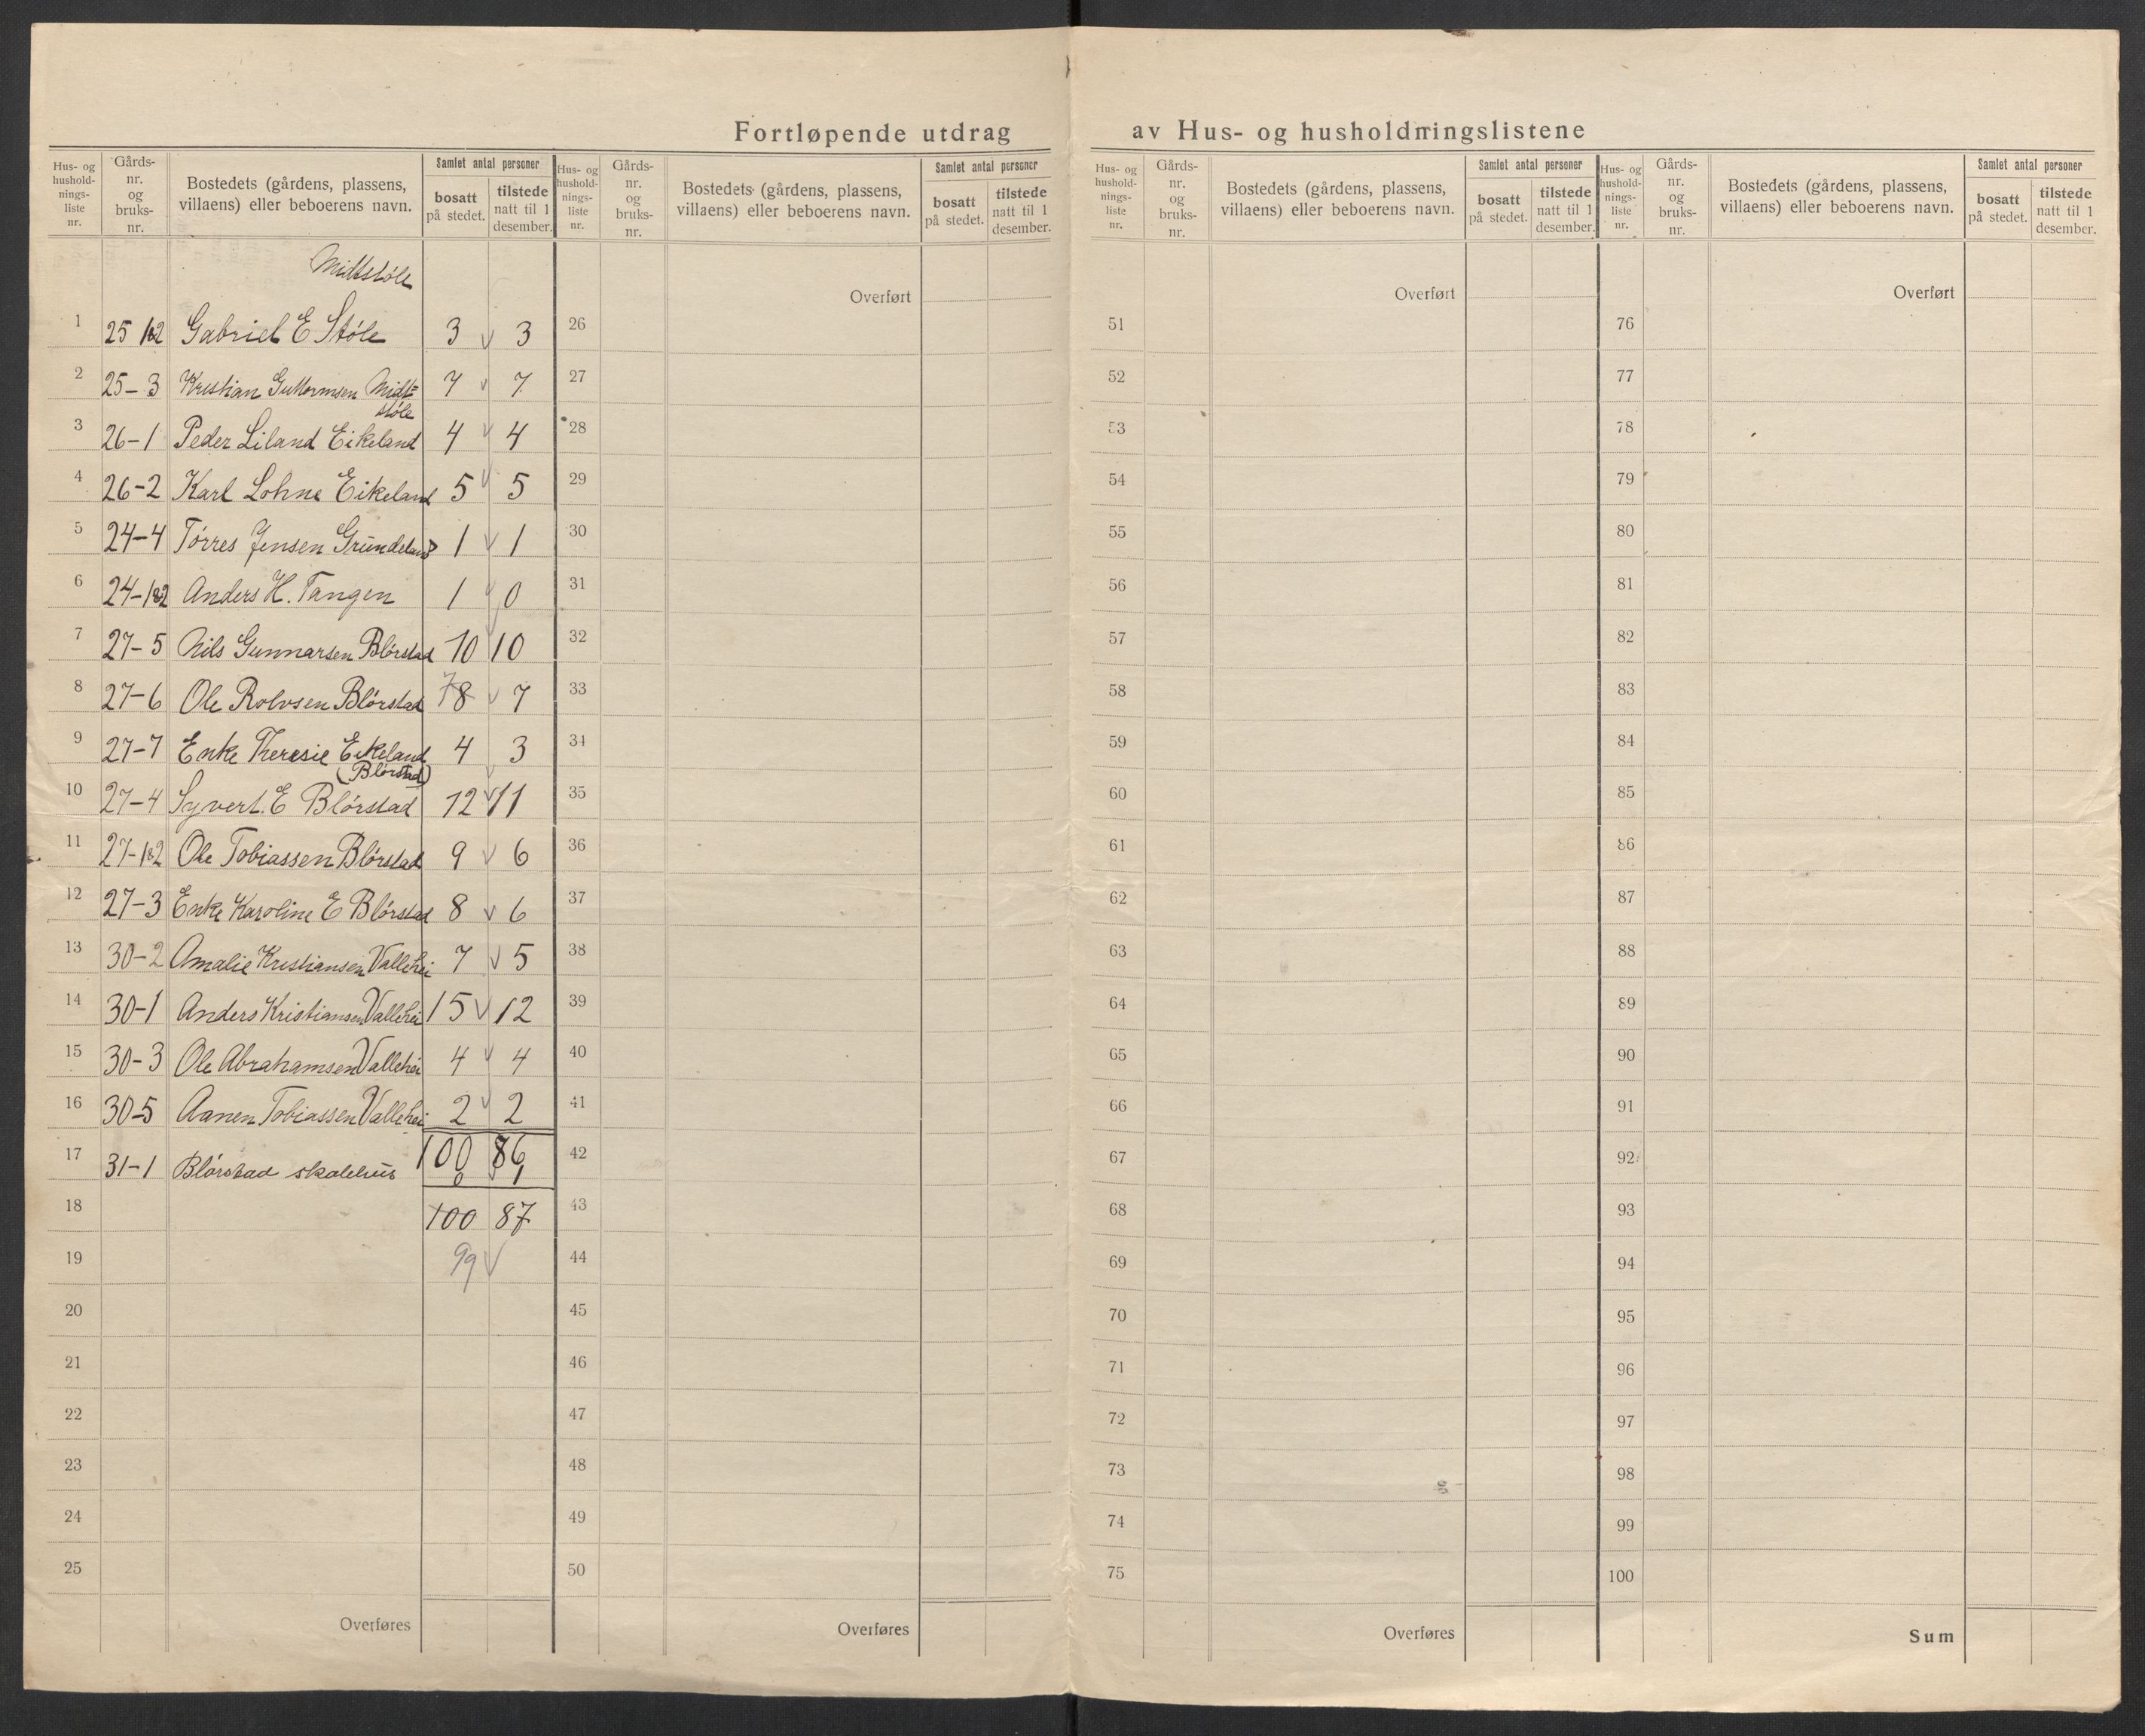 Fortløpende utdrag av Hus- og husholdningslistene
Hus- og husholdnings-liste nr. Gårds-nr. og bruks-nr. Bostedets (gårdens, plassens, villaens) eller beboerens navn. Samlet antal personer bosatt på stedet. tilstede natt til 1 desember.
Hus- og husholdnings-liste nr. Gårds-nr. og bruks-nr. Bostedets (gårdens, plassens, villaens) eller beboerens navn. Samlet antal personer bosatt på stedet. tilstede natt til 1 desember.
Hus- og husholdnings-liste nr. Gårds-nr. og bruks-nr. Bostedets (gårdens, plassens, villaens) eller beboerens navn. Samlet antal personer bosatt på stedet. tilstede natt til 1 desember.
Hus- og husholdnings-liste nr. Gårds-nr. og bruks-nr. Bostedets (gårdens, plassens, villaens) eller beboerens navn. Samlet antal personer bosatt på stedet. tilstede natt til 1 desember.
Midtstøle
1 25 1&2 Gabriel E Støle 3 v 3
2 25-3 Kristian Guttormsen Midt=
støle 7 v 7
3 26-1 Peder Liland Eikeland 4 v 4
4 26-2 Karl Lohne Eikeland 5 v 5
5 24-4 Tørres Jensen Grundeland 1 v 1
6 24-1&2 Anders H. Tangen 1 v 0
7 27-5 Nils Gunnarsen Blørstad 10 10
8 27-6 Ole Rolvsen Blørstad 7 8 v 7
9 27-7 Enke Theresie Eikeland
(Blørstad) 4 3
10 27-4 Syvert. E Blørstad 12 v 11
11 27-1&2 Ole Tobiassen Blørstad 9 v 6
12 27-3 Enke Karoline E Blørstad 8 v 6
13 30-2 Amalie Kristiansen Vallehei 7 v 5
14 30-1 Anders Kristiansen Vallehei 15 v 12
15 30-3 Ole Abrahamsen Vallehei 4 v 4
16 30-5 Aanen Tobiassen Vallehei 2 v 2
100 86
17 31-1 Blørstad skolehus 0 v 1
18 100 87
19 99 v
20
21
22
23
24
25
Overføres
Overført
26
27
28
29
30
31
32
33
34
35
36
37
38
39
40
41
42
43
44
45
46
47
48
49
50
Overføres
Overført
51
52
53
54
55
56
57
58
59
60
61
62
63
64
65
66
67
68
69
70
71
72
73
74
75
Overføres
Overført
76
77
78
79
80
81
82
83
84
85
86
87
88
89
90
91
92
93
94
95
96
97
98
99
100
Sum